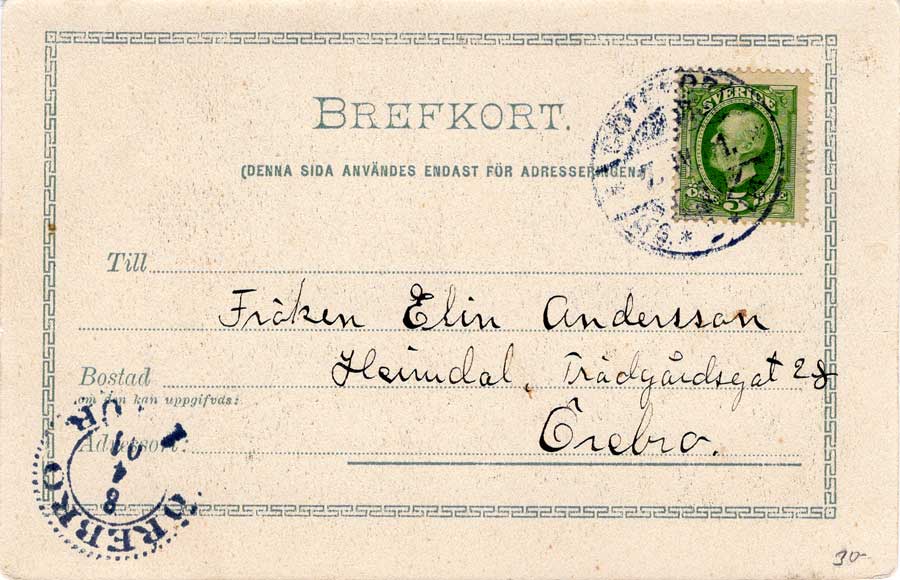 BREFKORT.
(DENNA SIDA ANVÄNDES ENDAST FÖR ADRESSERINGEN)
SVERIGE
5
ÖRE
Till
Fröken Elin Andersson
Bostad
om den kan uppgifvas:
Heimdal, Trädgårdsgat
Adressort:
Örebro.
ÖREBRO
8
4
01
1
UR
30-